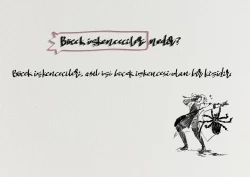 Böcek işkencecileri nedir?
Böcek işkencecileri, asıl işi böcek işkencesi olan bir kişidir.